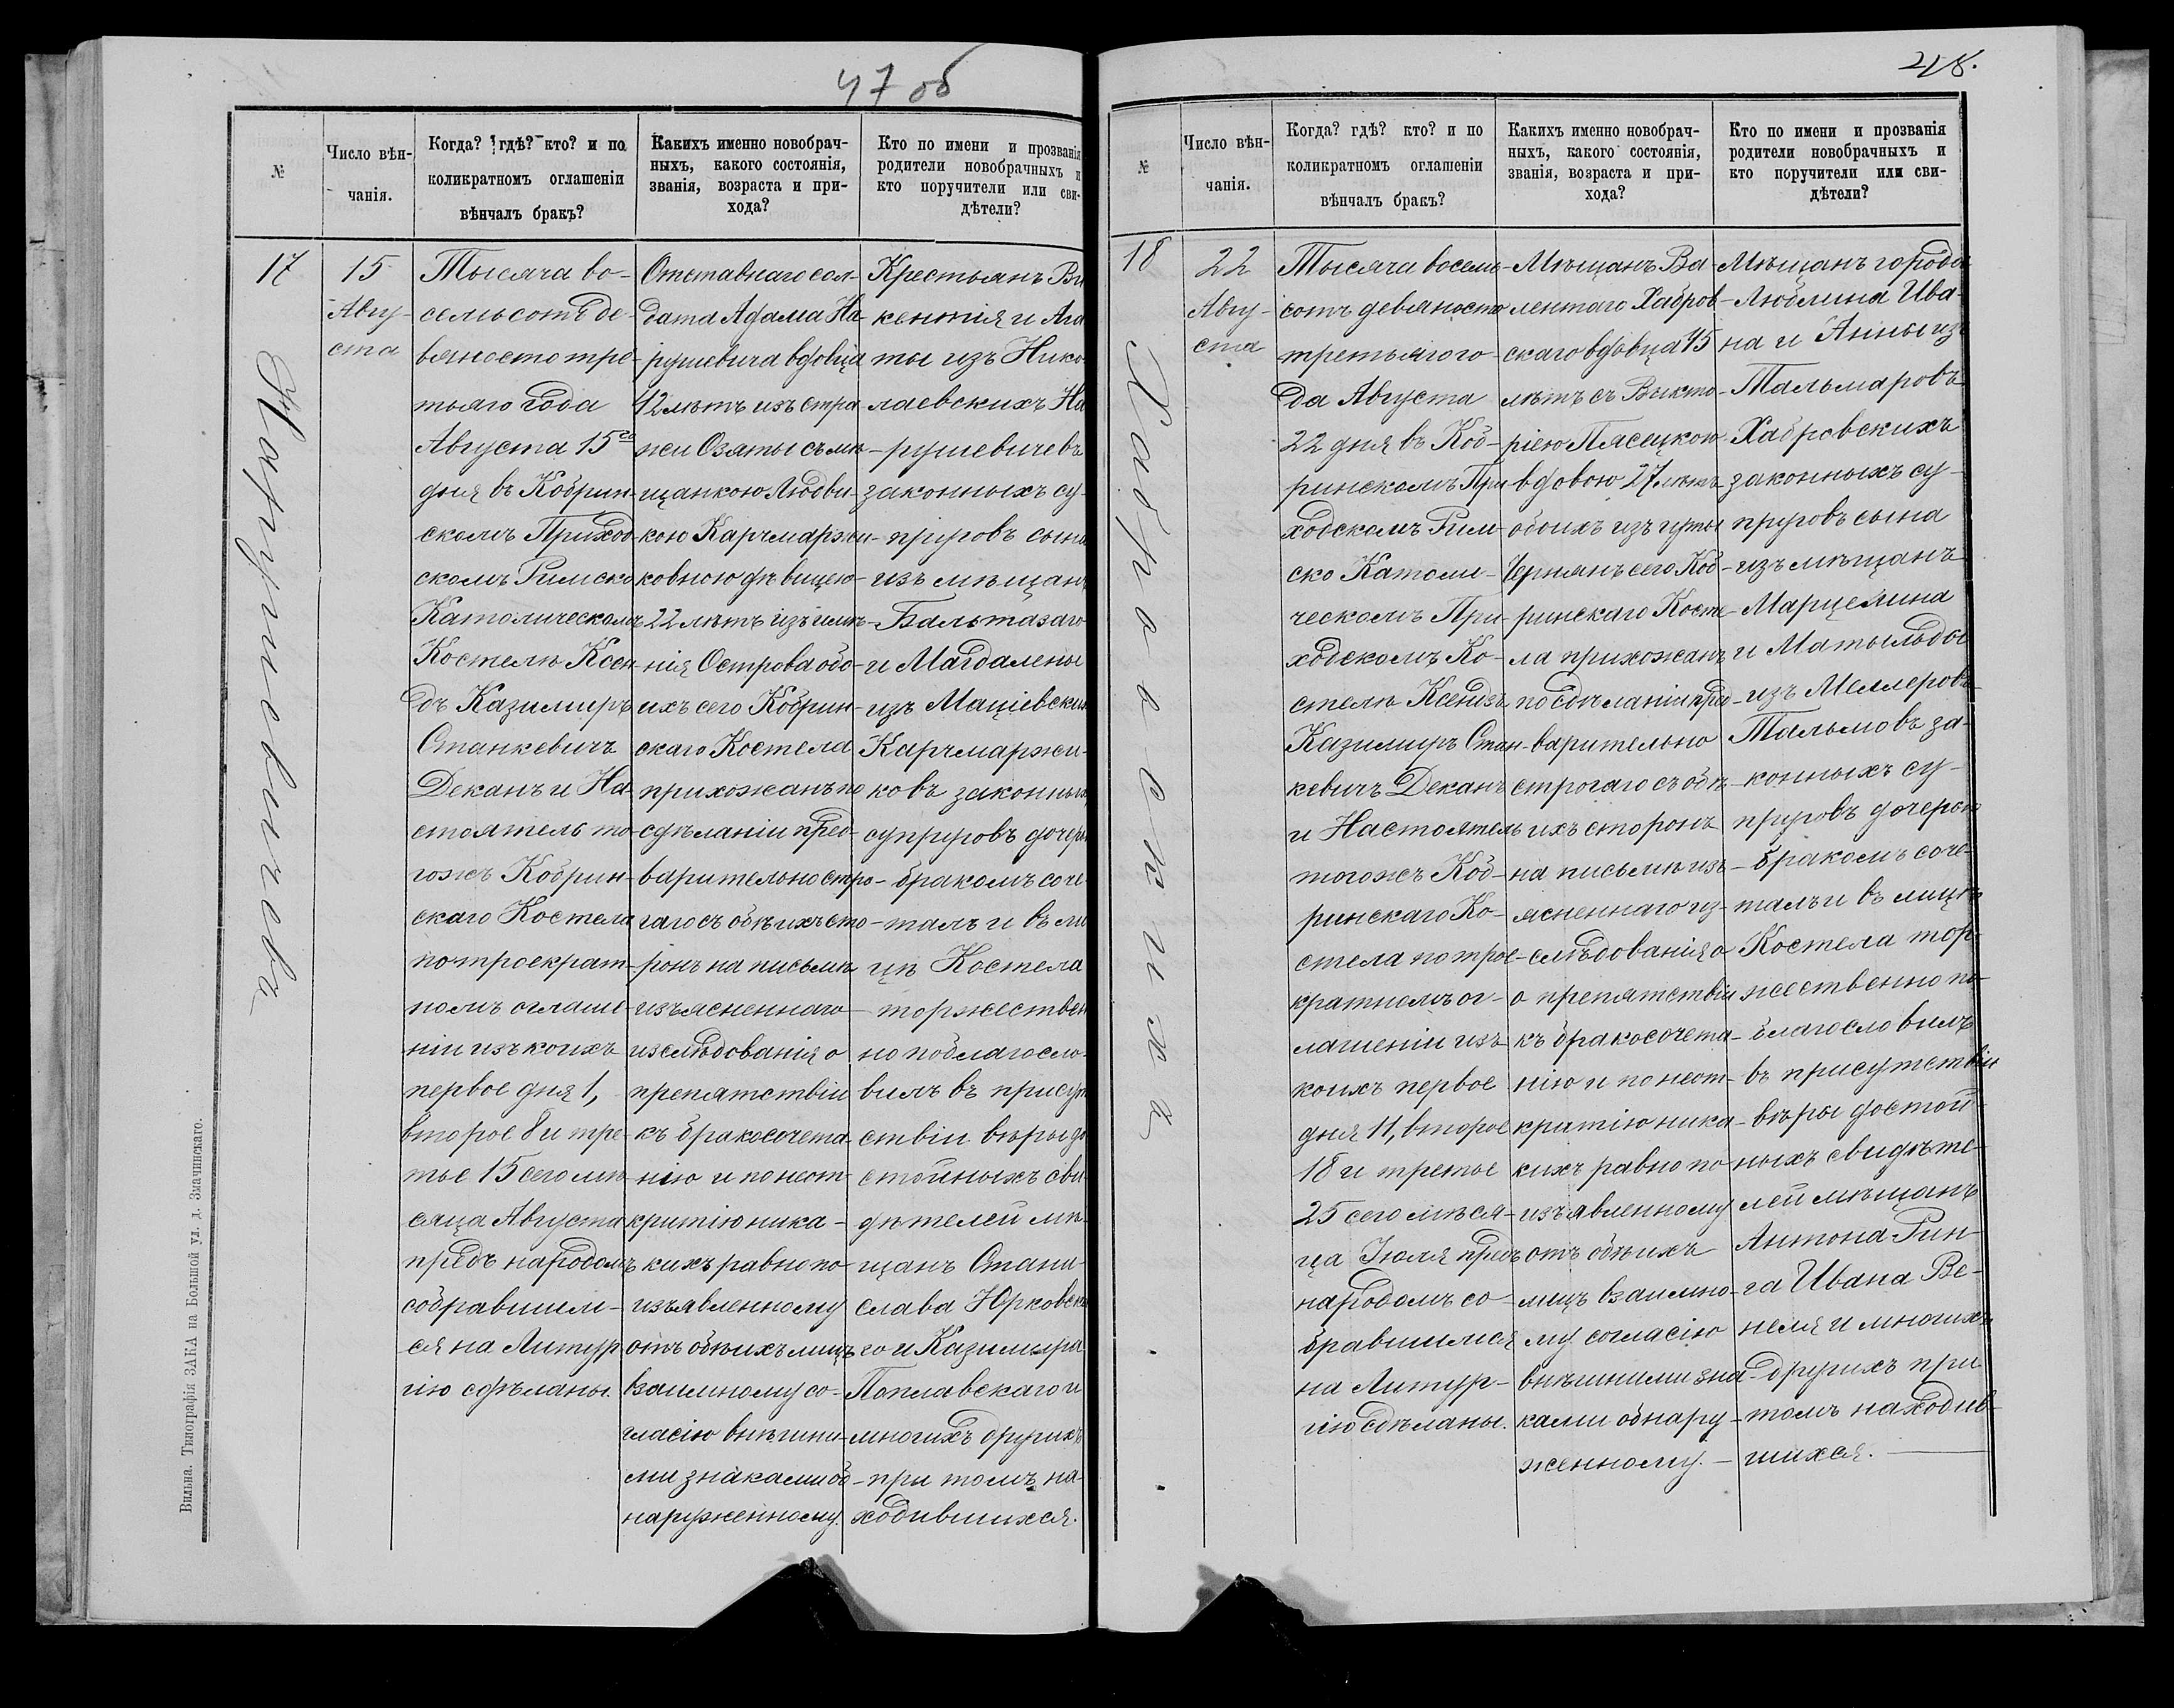 47 об
№
Число вѣн-
чанія.
Когда? гдѣ? кто? и по
коликратномъ оглашеніи
вѣнчалъ бракъ?
Какихъ именно новобрач-
ныхъ, какого состоянія,
званія, возраста и при-
хода?
Кто по имени и прозванія
родители новобрачныхъ и
кто поручители или сви-
дѣтели?
17
Нарушевичева
15
Авгу-
ста
Тысяча во-
семьсотъ де-
вяносто тре-
тьяго года
Августа 15го
дня въ Кобрин-
скомъ Приход-
скомъ Римско
Католическомъ
Костелѣ Ксен-
дъ Казимиръ
Станкевичъ
Деканъ и На-
стоятель то-
гожъ Кобрин-
скаго Костела
по троекрат-
номъ оглаше-
ніи изъ коихъ
первое дня 1,
второе 8 и тре-
тье 15 сего мѣ-
сяца Августа
предъ народомъ
собравшим-
ся на Литур-
гію сдѣланы.
Отставнаго сол-
дата Адама На-
рушевича вдовца
42 лѣтъ изъ стра
жеи Озяты съ мѣ-
щанкою Людви-
кою Карчмаржи-
ковною дѣвицею
22 лѣтъ изъ имѣ-
нія Острова обо-
ихъ сего Кобрин-
скаго Костела
прихожанъ по
сдѣланіи пред-
варительно стро-
гаго съ обѣихъ сто-
ронъ на письмѣ
изъясненнаго
изслѣдованія о
препятствіи
къ бракосочета-
нію и по неот-
критію ника-
кихъ равно по
изъявленному
отъ обѣихъ лицъ
взаимному со-
гласію внѣшни-
ми знаками об-
наруженному.
Крестьянъ Ви
кентія и Ага
ты изъ Нико
лаевскихъ На
рушевичевъ
законныхъ су-
пруговъ сына
изъ мѣщанъ
Бальтазаго
и Магдалены
изъ Маціевских
Карчмаржи-
ковъ законныхъ
супруговъ дочерью
бракомъ соче
талъ и въ ли
цѣ Костела
торжествен
но поблагосло-
вилъ въ присут
ствіи вѣры до
стойныхъ сви-
дѣтелей мѣ-
щанъ Стани-
слава Юрковска
го и Казимира
Поплавскаго и
многихъ другихъ
при томъ на-
ходившихся.
Вильна. Типографія ЗАКА на Большой ул. д. Змачинскаго.
48.
№
Число вѣн-
чанія.
Когда? гдѣ? кто? и по
коликратномъ оглашеніи
вѣнчалъ бракъ?
Какихъ именно новобрач-
ныхъ, какого состоянія,
званія, возраста и при-
хода?
Кто по имени и прозванія
родители новобрачныхъ и
кто поручители или сви-
дѣтели?
18
Хабровскихъ
22
Авгу-
ста
Тысяча восемь-
сотъ девяносто
третьягого-
да Августа
22 дня въ Коб-
ринскомъ При
ходскомъ Рим-
ско Католи-
ческомъ При-
ходскомъ Ко-
стелѣ Ксендзъ
Казимиръ Стан-
кевичъ Деканъ
и Настоятель
тогожъ Коб-
ринскаго Ко-
стела по трое-
кратномъ ог-
лашеніи изъ
коихъ первое
дня 11, второе
18 и третье
25 сего мѣся-
ца Іюля предъ
народомъ со-
бравшимся
на Литур-
гію сдѣланы.
Мѣщанъ Ва-
лентаго Хабров-
скаго вдовца 45
лѣтъ съ Викто-
ріею Пясецкою
вдовою 27 лѣтъ
обоихъ изъ гуты
Чернянъ сего Коб-
ринскаго Косте-
ла прихожанъ
по сдѣланіи пред-
варительно
строгаго съ обѣ-
ихъ сторонъ
на письмѣ изъ-
ясненнаго из-
слѣдованія о
о препятствіи
къ бракосочета-
нію и по неот-
критію ника-
кихъ равно по
изъявленному
отъ обѣихъ
лицъ взаимно-
му согласію
внѣшними зна-
ками обнару-
женному.
Мѣщанъ города
Люблина Ива-
на и Анны изъ
Тальмаровъ
Хабровскихъ
законныхъ су-
пруговъ сына
изъ мѣщанъ
Марцелина
и Матыльды
изъ Меллеровъ
Тальмовъ за-
конныхъ су-
пруговъ дочерью
бракомъ соче-
талъ и въ лицѣ
Костела тор-
жественно по-
благословилъ
въ присутствіи
вѣры достой-
ныхъ свидѣте-
лей мѣщанъ
Антона Рин-
га Ивана Ве-
неля и многихъ
другихъ при
томъ находив-
шихся.